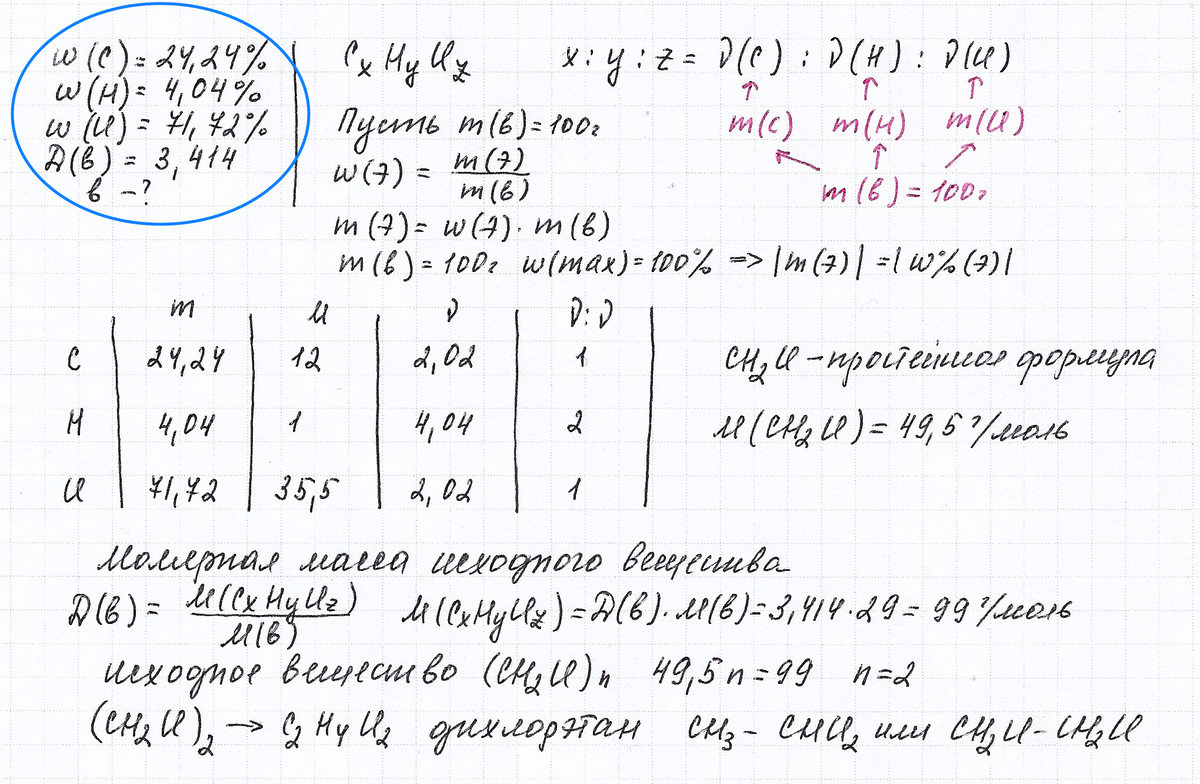 w(C) = 24,24%
w(H) = 4,04%
w(Cl) = 71,72%
D(в) = 3,414
в - ?
CxHyClz x : y : z = ν(C) : ν(H) : ν(Cl)
↑ ↑ ↑
Пусть m(в) = 100г m(C) m(H) m(Cl)
w(э) = m(э)/m(в) m(в) = 100г
m(э) = w(э) · m(в)
m(в) = 100г w(max) = 100% => |m(э)| = |w%(э)|
m M ν ν:ν
C 24,24 12 2,02 1 CH₂Cl - простейшая формула
H 4,04 1 4,04 2 M(CH₂Cl) = 49,5 г/моль
Cl 71,72 35,5 2,02 1
Молярная масса исходного вещества
D(в) = M(CxHyClz)/M(в) M(CxHyClz) = D(в) · M(в) = 3,414 · 29 = 99 г/моль
исходное вещество (CH₂Cl)n 49,5n = 99 n = 2
(CH₂Cl)₂ → C₂H₄Cl₂ дихлорэтан CH₃ - CHCl₂ или CH₂Cl - CH₂Cl